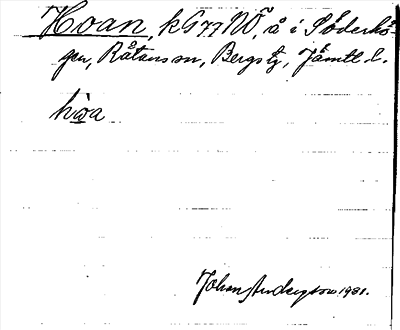 Hoan, kG77NÖ, å i Söderhö-
gen, Råtans sn, Bergs tg, Jämtl. l.
hòa
Johan Anderson 1931.